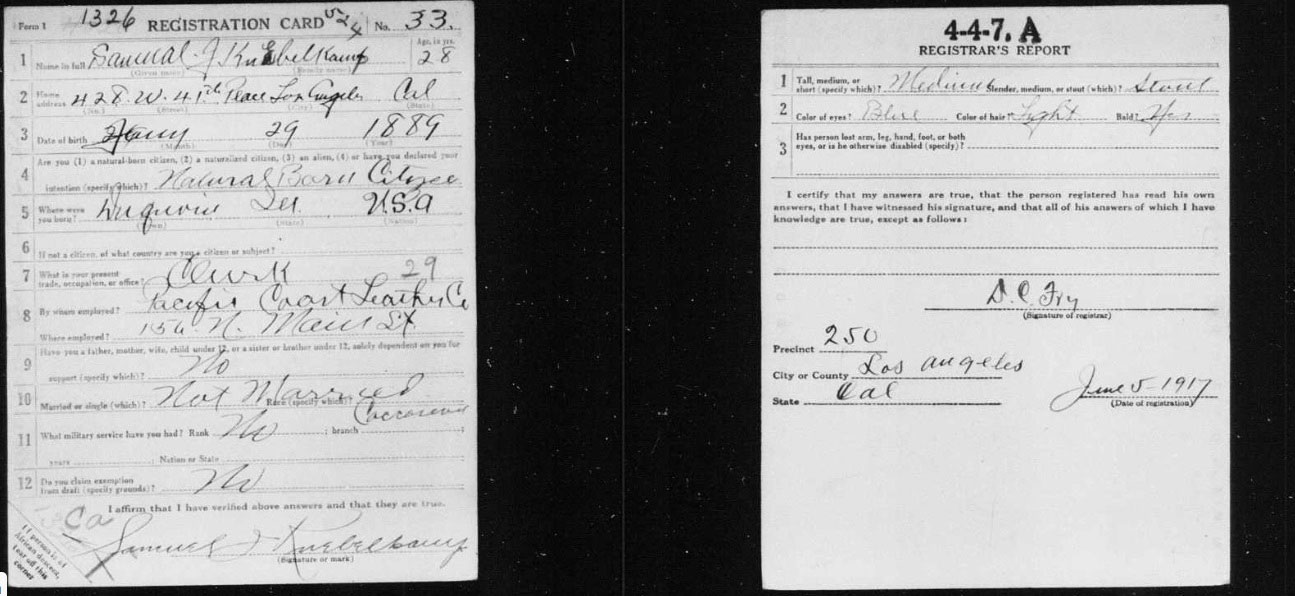 Form 1 1326 REGISTRATION CARD 524 No. 33.
1 Name in full Samueal J Knebelkamp Age, in yrs. 28
(Given name) (Family name)
2 Home address 428 W. 41th Place Los Angeles Cal
(No.) (Street) (City) (State)
3 Date of birth Jany 29 1889
(Month) (Day) (Year)
4 Are you (1) a natural-born citizen, (2) a naturalized citizen, (3) an alien, (4) or have you declared your
intention (specify which)? Natural Born Citizen
5 Where were you born? Duquoin Ill. U.S.A
(Town) (State) (Nation)
6 If not a citizen, of what country are you a citizen or subject?
7 What is your present trade, occupation, or office? Clerk 29
8 By whom employed? Pacific Coast Leather Co
Where employed? 156 N. Main St.
9 Have you a father, mother, wife, child under 12, or a sister or brother under 12, solely dependent on you for
support (specify which)? No
10 Married or single (which)? Not Married Race (specify which)? Caucasian
11 What military service have you had? Rank No ; branch ;
years ; Nation or State
12 Do you claim exemption from draft (specify grounds)? No
I affirm that I have verified above answers and that they are true.
Ca
Samuel J Knebelkamp
(Signature or mark)
If person is of
African descent,
tear off this
corner
4-4-7. A
REGISTRAR'S REPORT
1 Tall, medium, or short (specify which)? Medium Slender, medium, or stout (which)? Stout
2 Color of eyes? Blue Color of hair? Light Bald? Yes
3 Has person lost arm, leg, hand, foot, or both
eyes, or is he otherwise disabled (specify)?
I certify that my answers are true, that the person registered has read his own
answers, that I have witnessed his signature, and that all of his answers of which I have
knowledge are true, except as follows:
D. C. Fry
(Signature of registrar)
Precinct 250
City or County Los Angeles
State Cal
June 5-1917
(Date of registration)